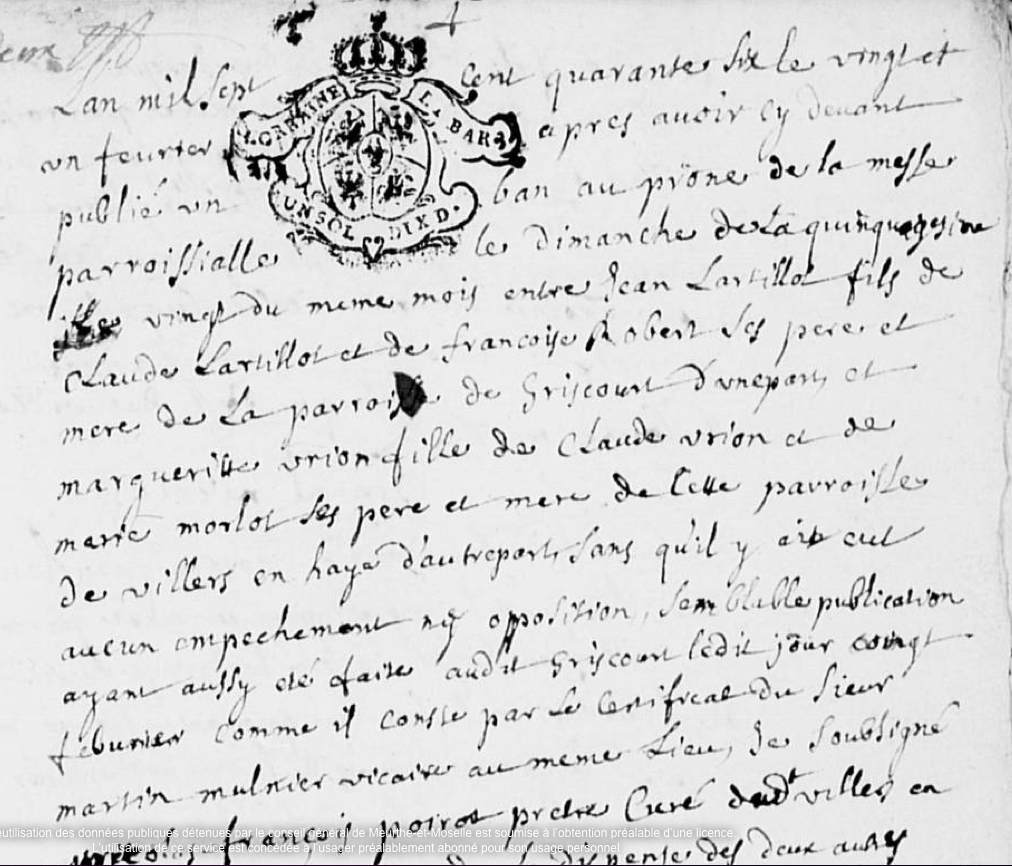 Lan mil Sept cent quarante Six le vingt et
un feuvrier apres avoir Cy devant
publié un ban au prône de la messe
parroissialle le Dimanche de La quinquagesime
vingt du meme mois entre Jean Lartillot fils de
Claude Lartillot et de francoise Robert Ses pere et
mere de La parroisse de Griscourt D'unepart, et
margueritte vrion fille de Claude vrion et de
marie morlot Ses pere et mere de Cette parroisse
de villers en haye d'autrepart, Sans qu'il y ait eut
aucun empechement ny opposition, Semblable publication
ayant aussy eté faite audit Griscourt ledit jour vingt
feburier Comme il Conste par Le Certificat du Sieur
martin mulnier vicaire au meme Lieu, Je Soubsigné
françois poirot pretre Curé dudt villers en
dispense des deux autres
LORRAINE ET BAR
UN SOL DIX D.
réutilisation des données publiques détenues par le conseil général de Meurthe-et-Moselle est soumise à l'obtention préalable d'une licence.
L'utilisation de ce service est concédée à l'usager préalablement abonné pour son usage personnel